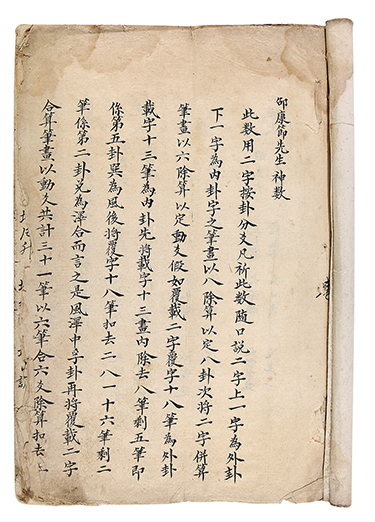 邵康節先生神數
此數用二字按卦分爻凡祈此數随口説二字上一字為外卦
下一字為内卦字之筆畫以八除算以定八卦次將二字併算
筆畫以六除算以定動爻假如覆載二字覆字十八筆為外卦
載字十三筆為内卦先將載字十三畫内除去八筆剩五筆即
係第五卦巽為風後將覆字十八筆扣去二八一十六筆剩二
筆係第二卦兑為澤合而言之是風澤中孚卦再將覆載二字
合算筆畫以動爻共計三十一筆以六筆合六爻除算扣去